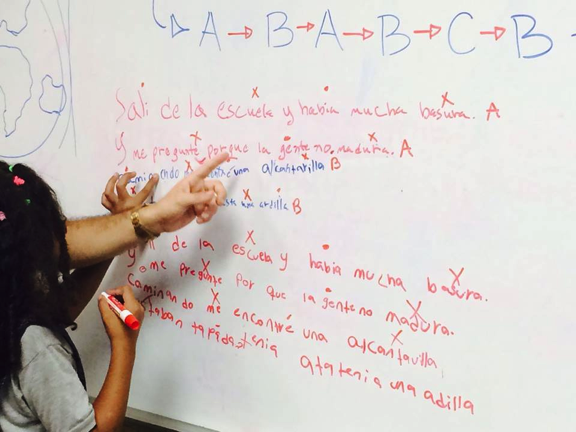 A → B → A → B → C → B
Salí de la escuela y había mucha basura. A
Y me pregunte porque la gente no madura. A
una alcantarilla B
una ardilla B
de la escuela y había mucha badura.
me pregunte por que la gente no madura.
caminando me encontré una alcantavilla
taban tapada tenia atatenia una adilla